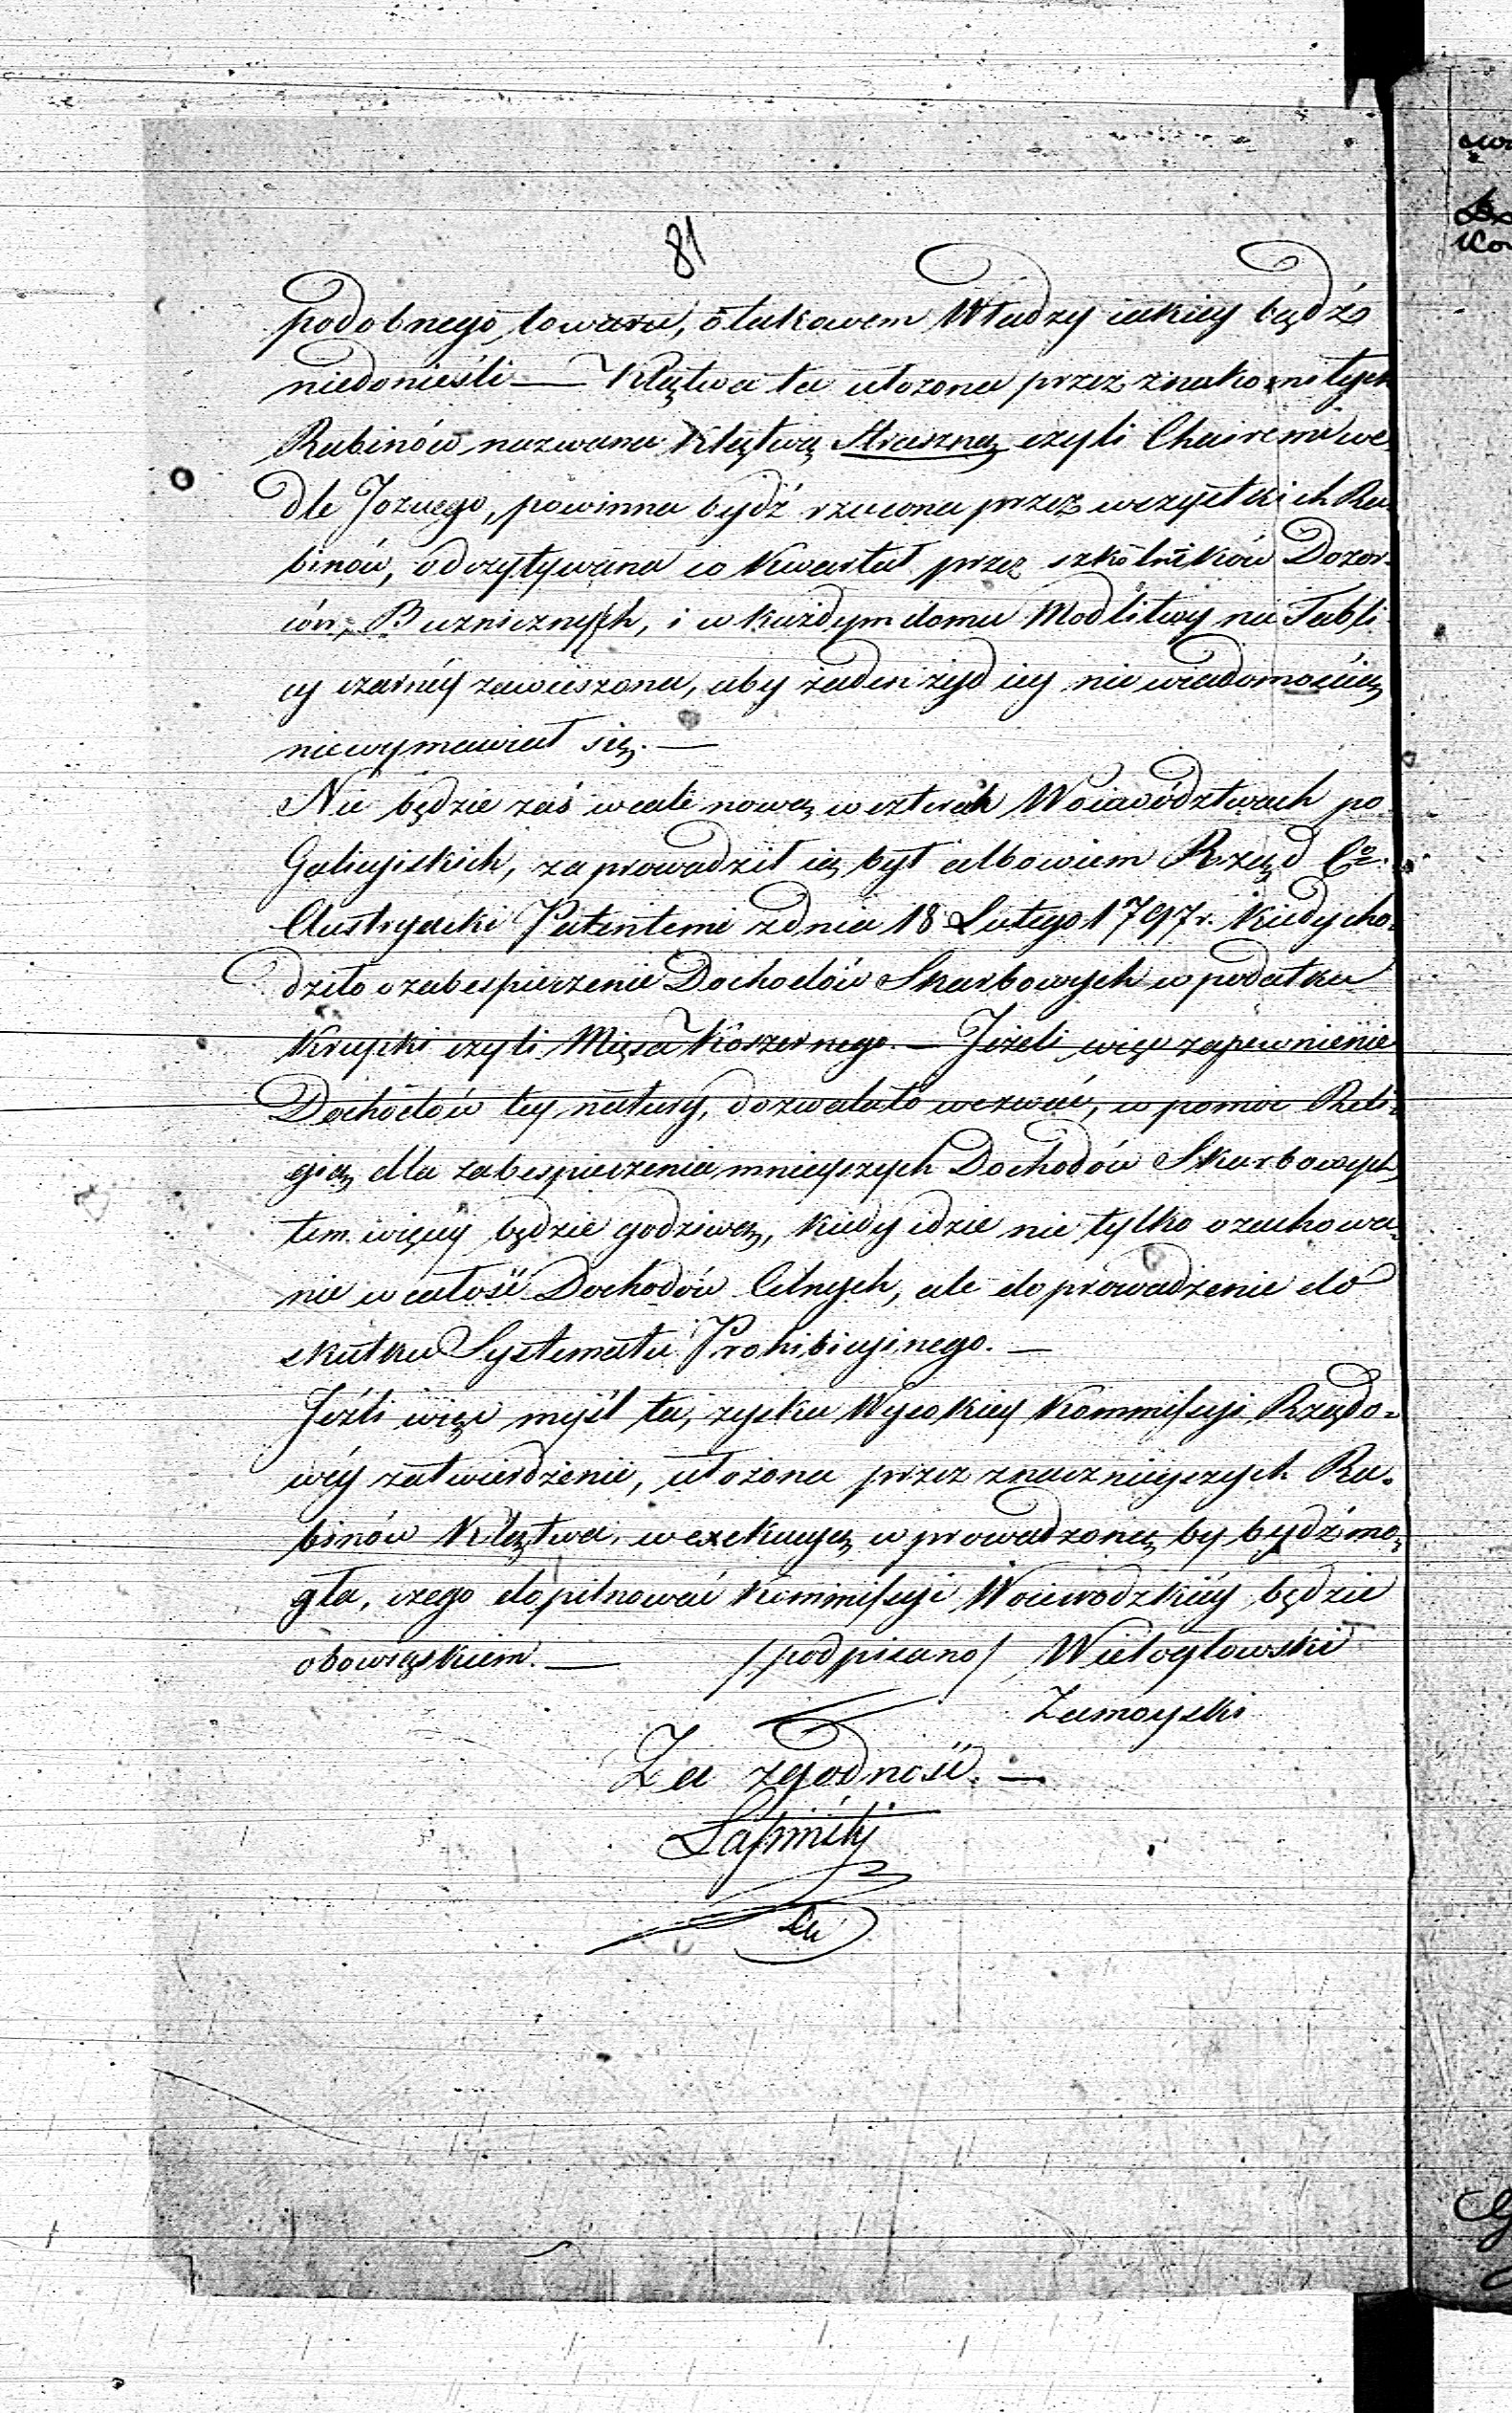 81
podobnego towaru, o takowem Władzy iakiey bądź
niedonieśli — Klątwa ta ułożona przez znakomitych
Rabinów nazwana Klątwą Straszną czyli Chairem we-
dle Jozuego, powinna bydź rzucona przez wszystkich Ra-
binów, odczytywana co Kwartał przez szkólników Dozor-
ców Buznicznych, i w każdym domu Modlitwy na Tabli-
cy czarnéy zawieszona, aby żaden żyd iey nie wiadomością
niewymawiał się. —
Nie będzie zaś wcale nową w czterech Woiewództwach po
Galicyiskich, zaprowadził ią był albowiem Rząd Co.
Austryacki Patentem z dnia 18 Lutego 1797 r. kiedy cho-
dziło o zabespieczenie Dochodów Skarbowych w podatku
Krupki czyli Mięsa Koszernego. — Jeżeli więc zapewnienie
Dochodów tey natury, dozwalało wezwać, w pomoc Reli-
gią dla zabespieczenia mnieyszych Dochodów Skarbowych,
tem więcey będzie godziwą, kiedy idzie nie tylko o zachowa-
nie w całość Dochodów Celnych, ale do prowadzenie do
skutku Systematu Prohibicyinego. —
Jeźli więc myśl ta, zyska Wysokiey Kommissyi Rządo-
wéy zatwierdzenie, ułożona przez znacznieyszych Ra-
binów Klątwa, w exekucyą wprowadzoną by bydź mo-
gła, czego dopilnować Kommissyi Woiewodzkiéy będzie
obowiązkiem. — /podpisano/ Wielogłowski
Zamoyski
Za zgodność. —